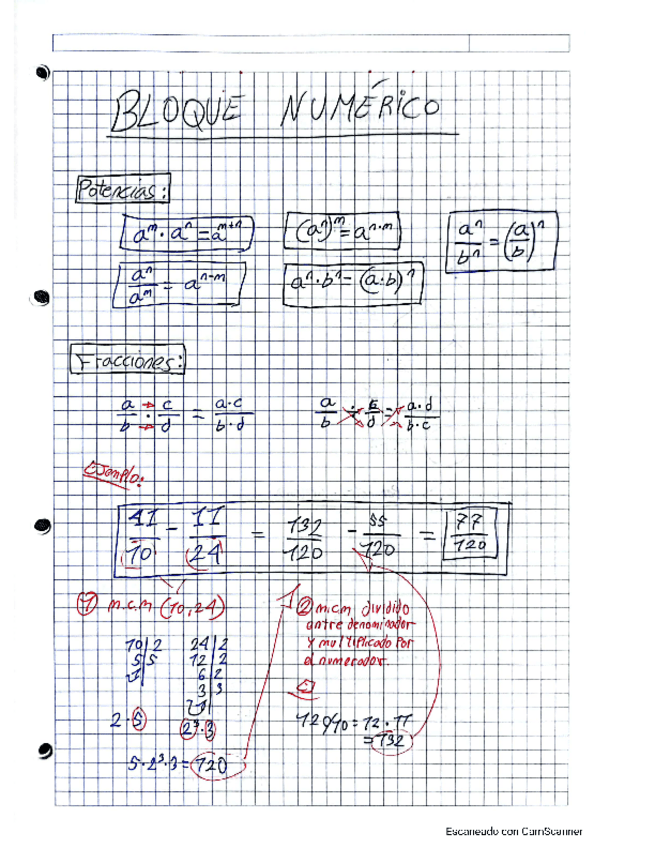 BLOQUE NUMÉRICO
Potencias:
a^m · a^n = a^m+n
(a^n)^m = a^n·m
a^n/b^n = (a/b)^n
a^n/a^m = a^n-m
a^n · b^n = (a·b)^n
Fracciones:
a/b · c/d = a·c/b·d
a/b ÷ c/d = a·d/b·c
Ejemplo:
41/10 - 11/24 = 132/120 - 55/120 = 77/120
① m.c.m (10,24)
② m.c.m dividido
antre denominador
y multiplicado por
el numerador.
10 | 2
5 | 5
1
24 | 2
12 | 2
6 | 2
3 | 3
1
2·5
2³·3
5·2³·3 = 120
120/10 = 12·11
= 132
Escaneado con CamScanner